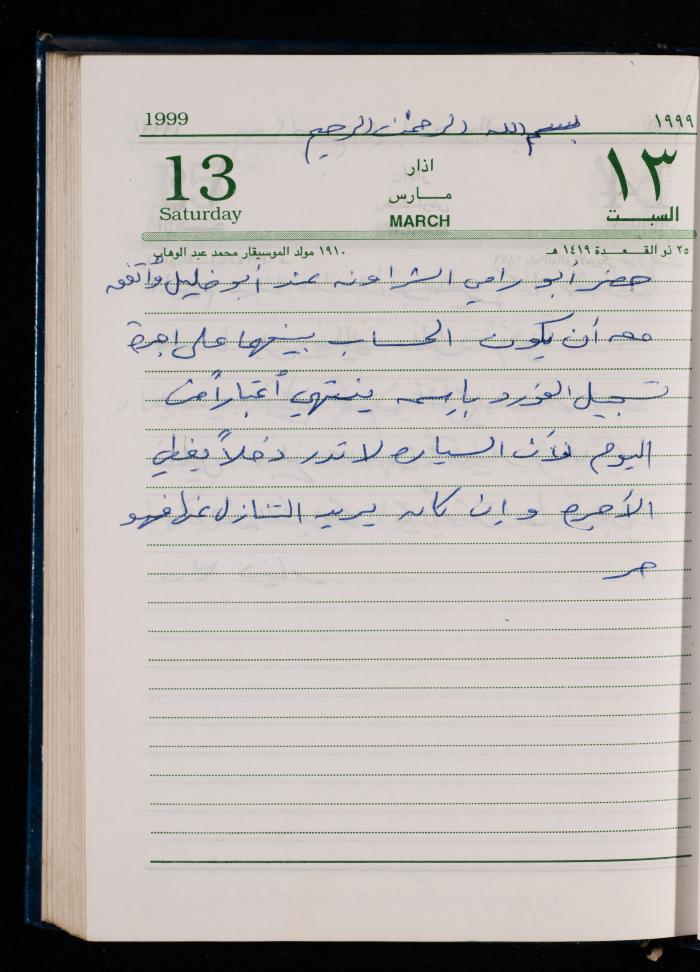 1999 بسم الله الرحمن الرحيم ١٩٩٩
13 اذار ١٣
Saturday مــارس السبــت
MARCH
١٩١٠ مولد الموسيقار محمد عبد الوهاب ٢٥ ذو القــعــدة ١٤١٩ هـ
حضر أبو رامي الشراونه عند أبو خليل وأتفق
معه أن يكون الحساب بينهما على اجرة
تسجيل الفورد بإسمه ينتهي أعتباراً من
اليوم لأن السياره لا تدر دخلاً يغطي
الأجره وإن كان يريد التنازل عنها فهو
حر